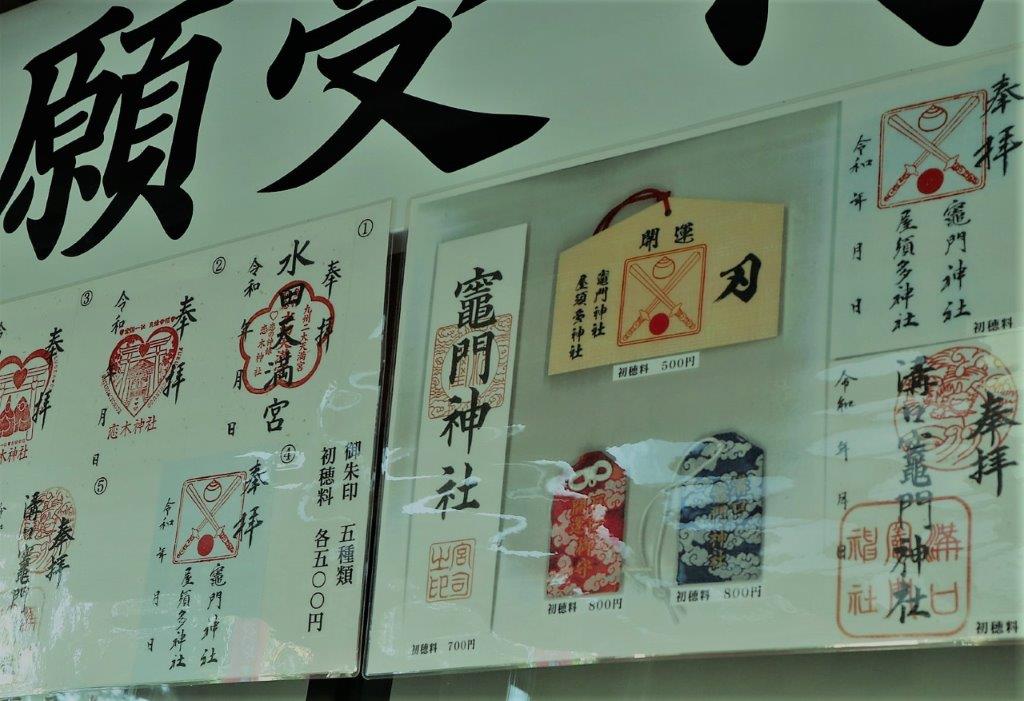 願受
①
奉拝
水田天満宮
九州二大天満宮
恋木神社
令和 年 月 日
②
奉拝
恋木神社
令和 年 月 日
③
奉拝
④
奉拝
竈門神社
屋須多神社
令和 年 月 日
⑤
奉拝
溝口竈門神社
御朱印 五種類
初穂料 各五〇〇円
竈門神社
宮司之印
初穂料 700円
開運
刃
竈門神社
初穂料 500円
初穂料 800円
初穂料 800円
奉拝
竈門神社
屋須多神社
令和 年 月 日
初穂料
奉拝
溝口竈門神社
令和 年 月 日
初穂料